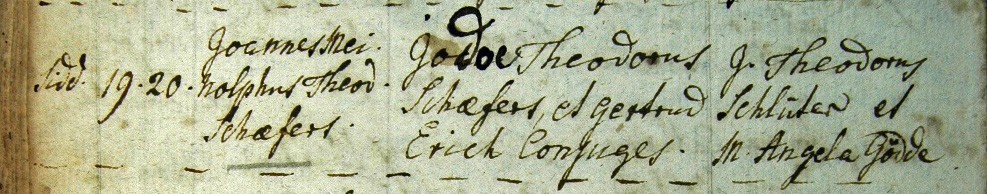 Sidd. 19. 20. Joannes Mei.
nolphus Theod.
Schæfers.
Jodoc Theodorus
Schæfers, et Gertrud
Erich Conjuges.
J. Theodorus
Schlüter et
M Angela Gödde